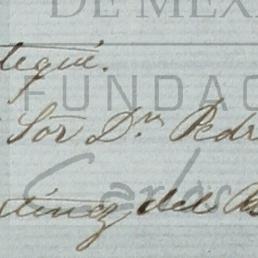 DE MÉX
tegui.
FUNDAC
Sor Dn Pedr
Carlos
tinez del